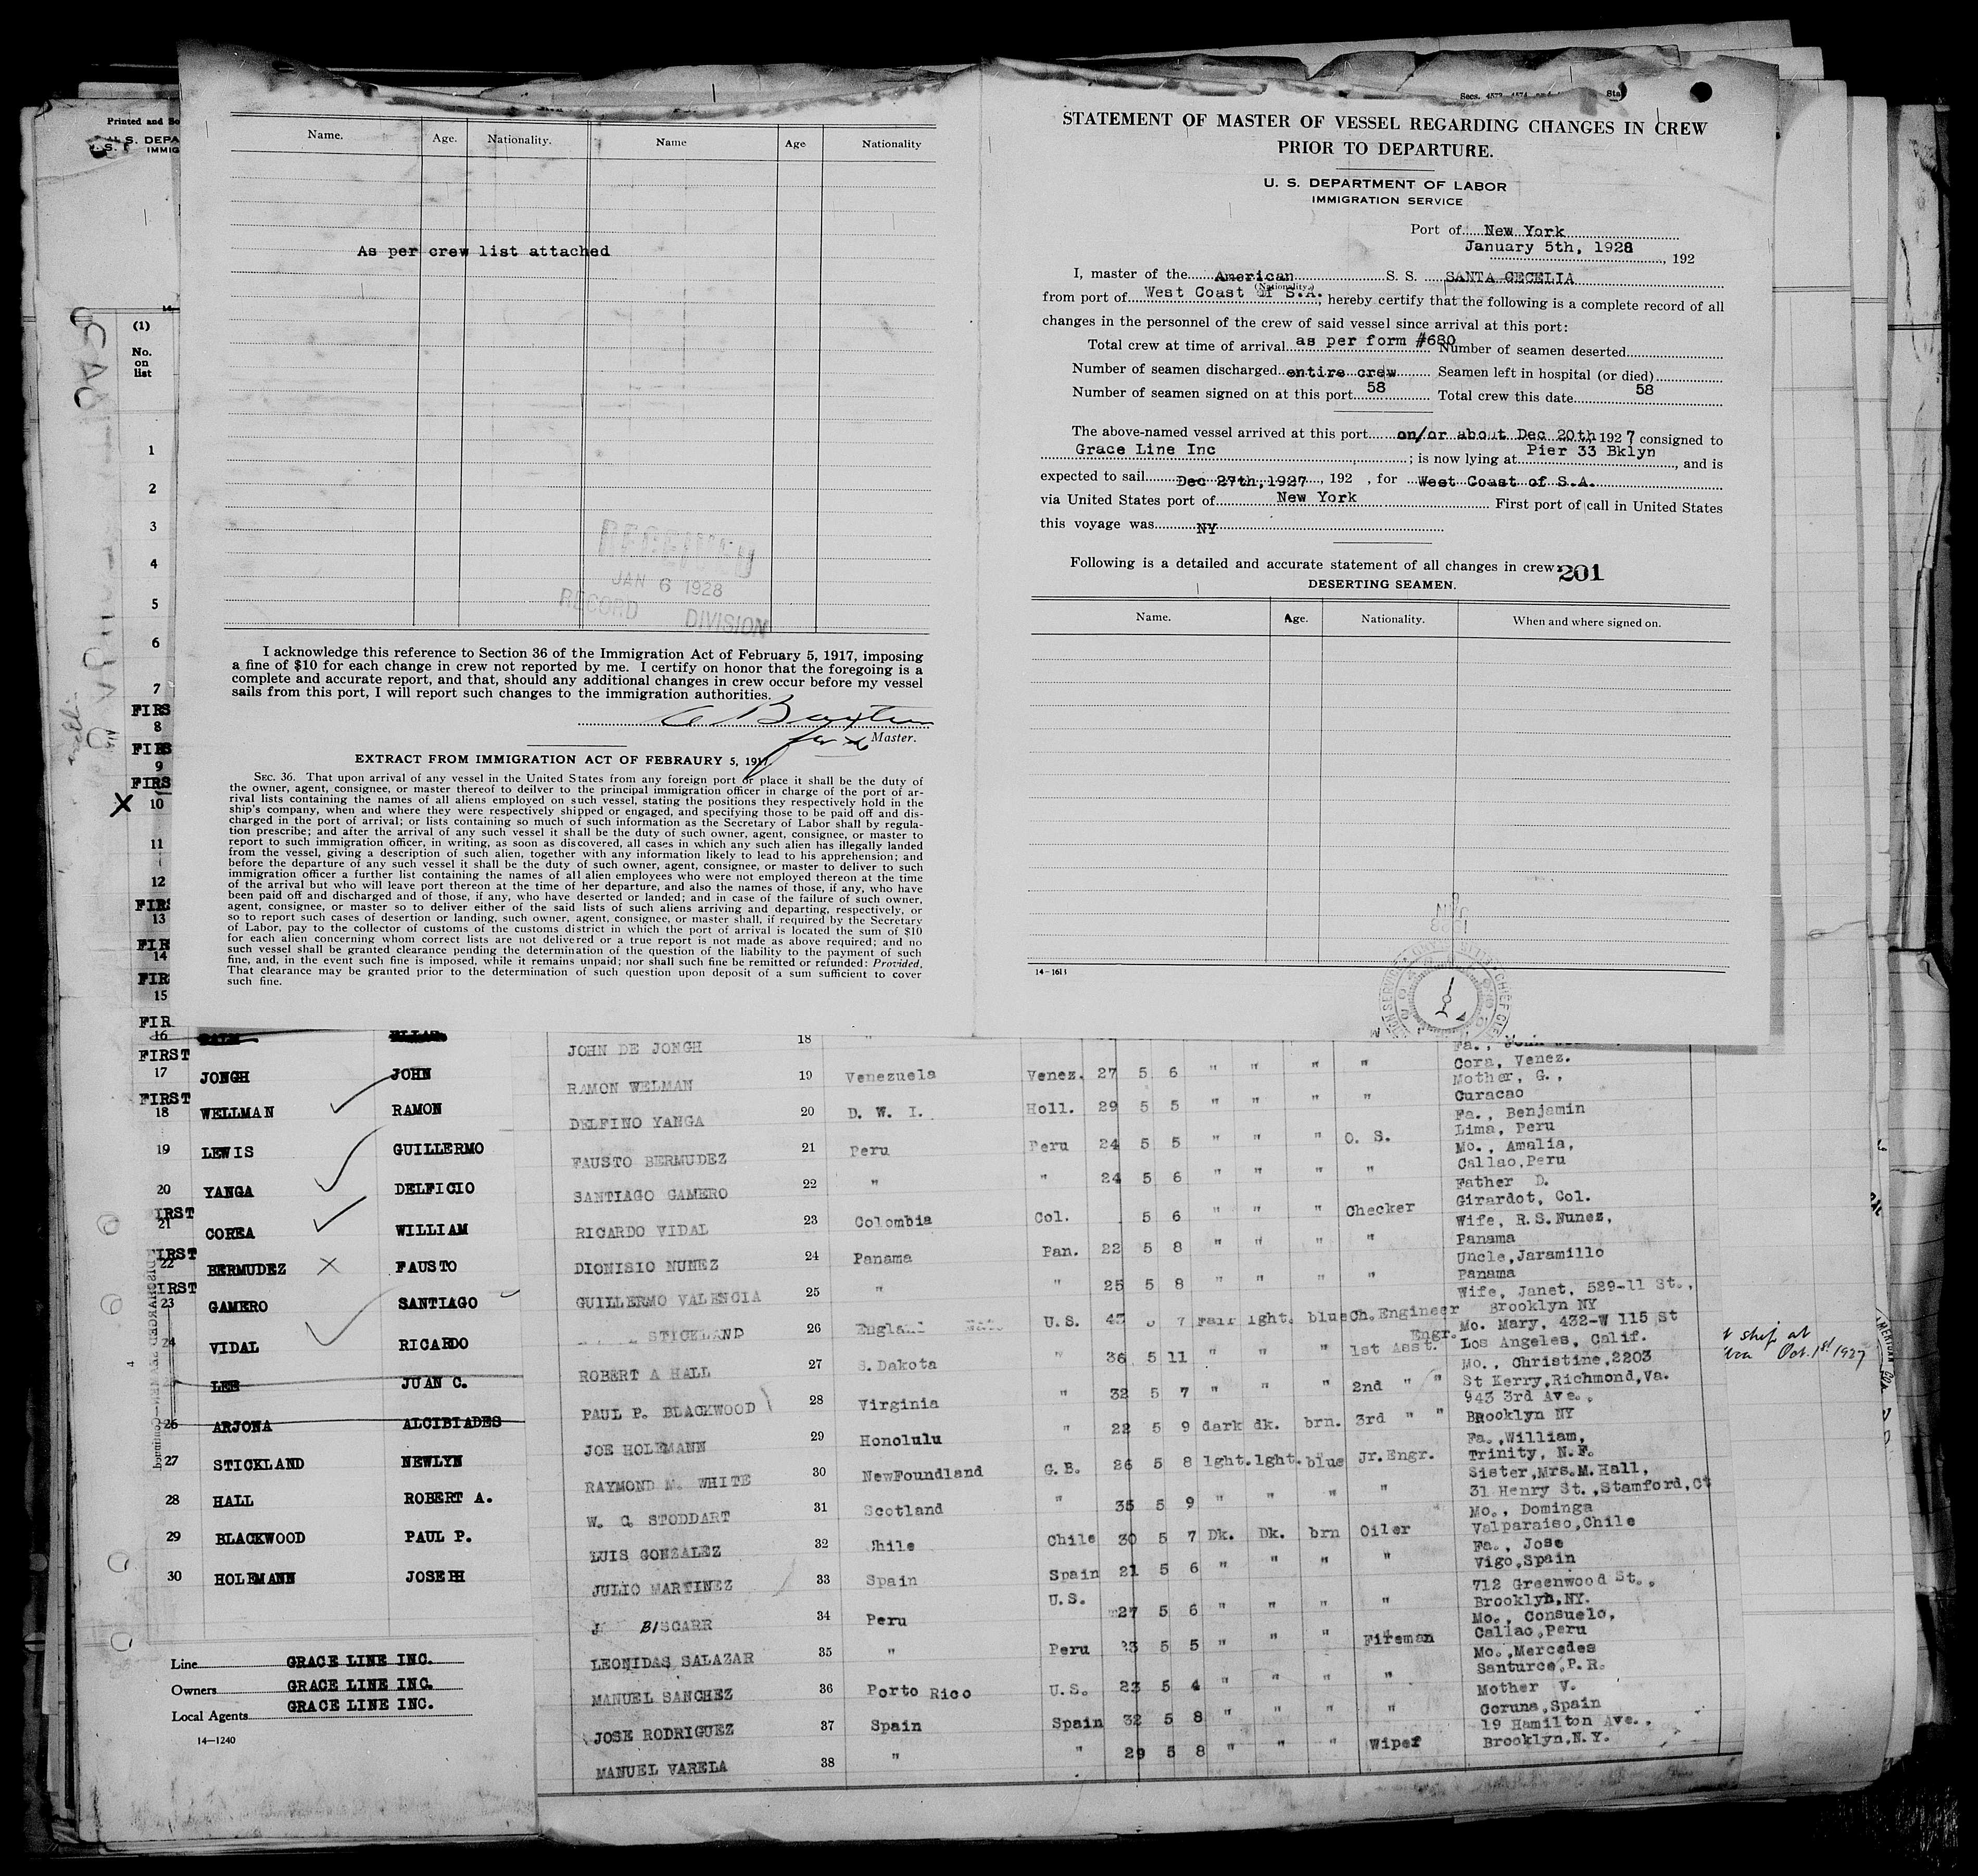 Name. Age. Nationality. Name Age Nationality
As per crew list attached
RECEIVED
JAN 6 1928
RECORD DIVISION
I acknowledge this reference to Section 36 of the Immigration Act of February 5, 1917, imposing
a fine of $10 for each change in crew not reported by me. I certify on honor that the foregoing is a
complete and accurate report, and that, should any additional changes in crew occur before my vessel
sails from this port, I will report such changes to the immigration authorities.
Master.
EXTRACT FROM IMMIGRATION ACT OF FEBRAURY 5, 1917
SEC. 36. That upon arrival of any vessel in the United States from any foreign port or place it shall be the duty of
the owner, agent, consignee, or master thereof to deilver to the principal immigration officer in charge of the port of ar-
rival lists containing the names of all aliens employed on such vessel, stating the positions they respectively hold in the
ship's company, when and where they were respectively shipped or engaged, and specifying those to be paid off and dis-
charged in the port of arrival; or lists containing so much of such information as the Secretary of Labor shall by regula-
tion prescribe; and after the arrival of any such vessel it shall be the duty of such owner, agent, consignee, or master to
report to such immigration officer, in writing, as soon as discovered, all cases in which any such alien has illegally landed
from the vessel, giving a description of such alien, together with any information likely to lead to his apprehension; and
before the departure of any such vessel it shall be the duty of such owner, agent, consignee, or master to deliver to such
immigration officer a further list containing the names of all alien employees who were not employed thereon at the time
of the arrival but who will leave port thereon at the time of her departure, and also the names of those, if any, who have
been paid off and discharged and of those, if any, who have deserted or landed; and in case of the failure of such owner,
agent, consignee, or master so to deliver either of the said lists of such aliens arriving and departing, respectively, or
so to report such cases of desertion or landing, such owner, agent, consignee, or master shall, if required by the Secretary
of Labor, pay to the collector of customs of the customs district in which the port of arrival is located the sum of $10
for each alien concerning whom correct lists are not delivered or a true report is not made as above required; and no
such vessel shall be granted clearance pending the determination of the question of the liability to the payment of such
fine, and, in the event such fine is imposed, while it remains unpaid; nor shall such fine be remitted or refunded: Provided,
That clearance may be granted prior to the determination of such question upon deposit of a sum sufficient to cover
such fine.
Secs. 4573, 4574
STATEMENT OF MASTER OF VESSEL REGARDING CHANGES IN CREW
PRIOR TO DEPARTURE.
U. S. DEPARTMENT OF LABOR
IMMIGRATION SERVICE
Port of New York
January 5th, 1928, 192
I, master of the American S. S. SANTA CECELIA
(Nationality.)
from port of West Coast of S.A.; hereby certify that the following is a complete record of all
changes in the personnel of the crew of said vessel since arrival at this port:
Total crew at time of arrival as per form #680 Number of seamen deserted
Number of seamen discharged entire crew Seamen left in hospital (or died)
Number of seamen signed on at this port 58 Total crew this date 58
The above-named vessel arrived at this port on/or about Dec 20th 1927 consigned to
Grace Line Inc; is now lying at Pier 33 Bklyn, and is
expected to sail Dec 27th,1927, 192 , for West Coast of S.A.
via United States port of New York First port of call in United States
this voyage was NY
Following is a detailed and accurate statement of all changes in crew 201
DESERTING SEAMEN.
Name. Age. Nationality. When and where signed on.
14-1613
Printed and
U. S. DEPA
IMMIG
(1)
No.
on
list
1
2
3
4
5
6
7
FIRS
8
FIRS
9
FIRS
X 10
11
12
FIRS
13
FIR
14
FIR
15
FIR
16
FIRST
17 JONGH JOHN
FIRST
18 WELLMAN RAMON
19 LEWIS GUILLERMO
20 YANGA DELFICIO
IRST
21 COREA WILLIAM
IRST
22 BERMUDEZ X FAUSTO
IRST
23 GAMERO SANTIAGO
24 VIDAL RICARDO
LEE JUAN C.
26 ARJONA ALCIBIADES
27 STICKLAND NEWLYN
28 HALL ROBERT A.
29 BLACKWOOD PAUL P.
30 HOLEMANN JOSEPH
Line GRACE LINE INC.
Owners GRACE LINE INC.
Local Agents GRACE LINE INC.
14-1240
JOHN DE JONGH 18 "
Cora, Venez.
RAMON WELMAN 19 Venezuela Venez. 27 5 6 " " " " Mother, G.,
Curacao
DELFINO YANGA 20 D. W. I. Holl. 29 5 5 " " " " Fa., Benjamin
Lima, Peru
FAUSTO BERMUDEZ 21 Peru Peru 24 5 5 " " " O. S. Mo., Amalia,
Callao,Peru
SANTIAGO GAMERO 22 " " 24 5 6 " " " " Father D.
Girardot, Col.
RICARDO VIDAL 23 Colombia Col. 5 6 " " " Checker Wife, R.S.Nunez,
Panama
DIONISIO NUNEZ 24 Panama Pan. 22 5 8 " " " " Uncle,Jaramillo
Panama
GUILLERMO VALENCIA 25 " " 25 5 8 " " " " Wife, Janet, 529-11 St.,
Brooklyn NY
STICKLAND 26 England U.S. 43 5 7 Fair lght. blue Ch.Engineer Mo. Mary, 432-W 115 St
Los Angeles, Calif.
ROBERT A HALL 27 S.Dakota " 36 5 11 " " " 1st Asst. Engr. Mo., Christine,2203
St Kerry,Richmond,Va.
PAUL P. BLACKWOOD 28 Virginia " 32 5 7 " " " 2nd " " 943 3rd Ave.,
Brooklyn NY
JOE HOLEMANN 29 Honolulu " 22 5 9 dark dk. brn. 3rd " " Fa.,William,
Trinity, N.F.
RAYMOND M. WHITE 30 NewFoundland G.B. 26 5 8 lght.lght.blue Jr.Engr. Sister,Mrs.M.Hall,
31 Henry St.,Stamford,Ct
W. C. STODDART 31 Scotland " 35 5 9 " " " " Mo., Dominga
Valparaiso,Chile
LUIS GONZALEZ 32 Chile Chile 30 5 7 Dk. Dk. brn Oiler Fa., Jose
Vigo,Spain
JULIO MARTINEZ 33 Spain Spain 21 5 6 " " " " 712 Greenwood St.,
Brooklyn,NY.
J BISCARR 34 Peru U.S. 27 5 6 " " " " Mo., Consuelo,
Callao,Peru
LEONIDAS SALAZAR 35 " Peru 23 5 5 " " " Fireman Mo.,Mercedes
Santurce,P.R.
MANUEL SANCHEZ 36 Porto Rico U.S. 23 5 4 " " " " Mother V.
Coruna,Spain
JOSE RODRIGUEZ 37 Spain Spain 32 5 8 " " " " 19 Hamilton Ave.,
Brooklyn,N.Y.
MANUEL VARELA 38 " " 29 5 8 " " " Wiper
ship at
Oct. 1st 1927